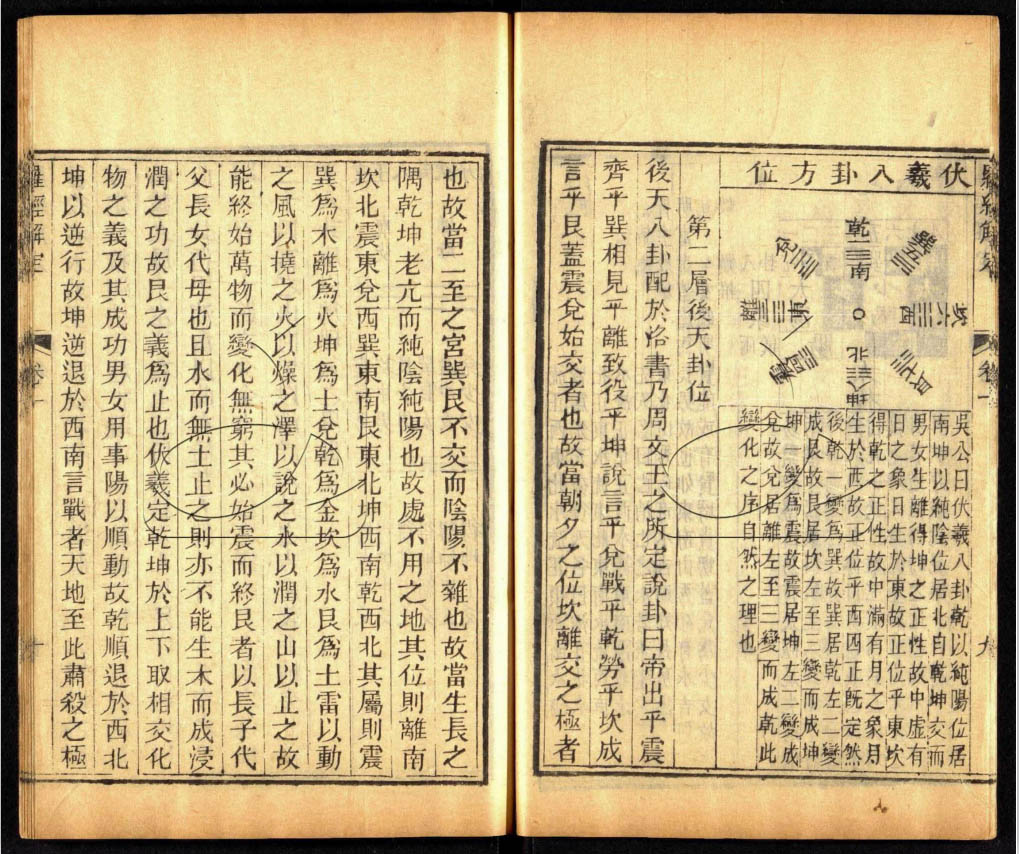 伏羲八卦方位
乾一南
兌二
離三東
震四
巽五
坎六西
艮七
坤八北
吳公曰伏羲八卦乾以純陽位居
南坤以純陰位居北自乾坤交而
男女生離得坤之正性故中虛有
日之象日生於東故正位乎東坎
得乾之正性故中滿有月之象月
生於西故正位乎西四正既定然
後乾一變為巽故巽居乾左二變
成艮故艮居坎左至三變而成坤
坤一變爲震故震居坤左二變成
兌故兌居離左至三變而成乾此
變化之序自然之理也
第二層後天卦位
後天八卦配於洛書乃周文王之所定說卦曰帝出乎震
齊乎巽相見乎離致役乎坤說言乎兌戰乎乾勞乎坎成
言乎艮蓋震兌始交者也故當朝夕之位坎離交之極者
九
也故當二至之宮巽艮不交而陰陽不雜也故當生長之
隅乾坤老亢而純陰純陽也故處不用之地其位則離南
坎北震東兌西巽東南艮東北坤西南乾西北其屬則震
巽爲木離爲火坤爲土兌乾爲金坎爲水艮爲土雷以動
之風以撓之火以燥之澤以說之水以潤之山以止之故
能終始萬物而變化無窮其必始震而終艮者以長子代
父長女代母也且水而無土止之則亦不能生木而成浸
潤之功故艮之義爲止也伏羲定乾坤於上下取相交化
物之義及其成功男女用事陽以順動故乾順退於西北
坤以逆行故坤逆退於西南言戰者天地至此肅殺之極
羅經解定
卷一
十